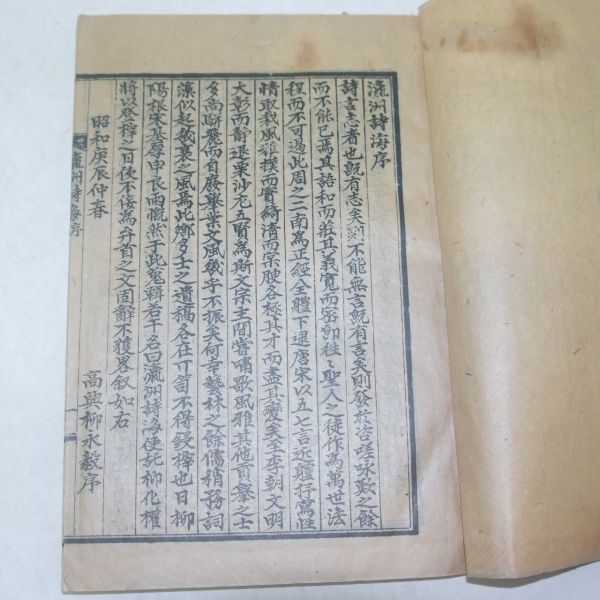 瀛洲詩海序
詩言志者也旣有志矣則不能無言旣有言矣則發於咨嗟咏歎之餘
而不能已焉其語和而莊其義寬而密卽往〻聖人之徒作爲萬世法
程而不可過此周之二南爲正經全軆下逮唐宋以五七言近軆行寫性
情取裁風雅撲而實綺淸而腴各極其才而盡其變矣至李朝文明
大彰而靜退栗沙尤五賢爲斯文宗主間嘗嘯歌風雅其他貢舉之士
多高翔飛而自廢擧業文風幾乎不振矣何幸藝林之餘儒稍務詞
藻似起衰之風焉此鄉多士之遺稿各在巾笥不得鋟梓也日柳
陽根宋基惪申良雨慨然于此蒐輯若干名曰瀛洲詩海使託柳化權
將以登梓之日使不佞爲弁首之文固辭不獲畧叙如右
昭和庚辰仲春
高興柳永毅序
瀛洲詩海序
一